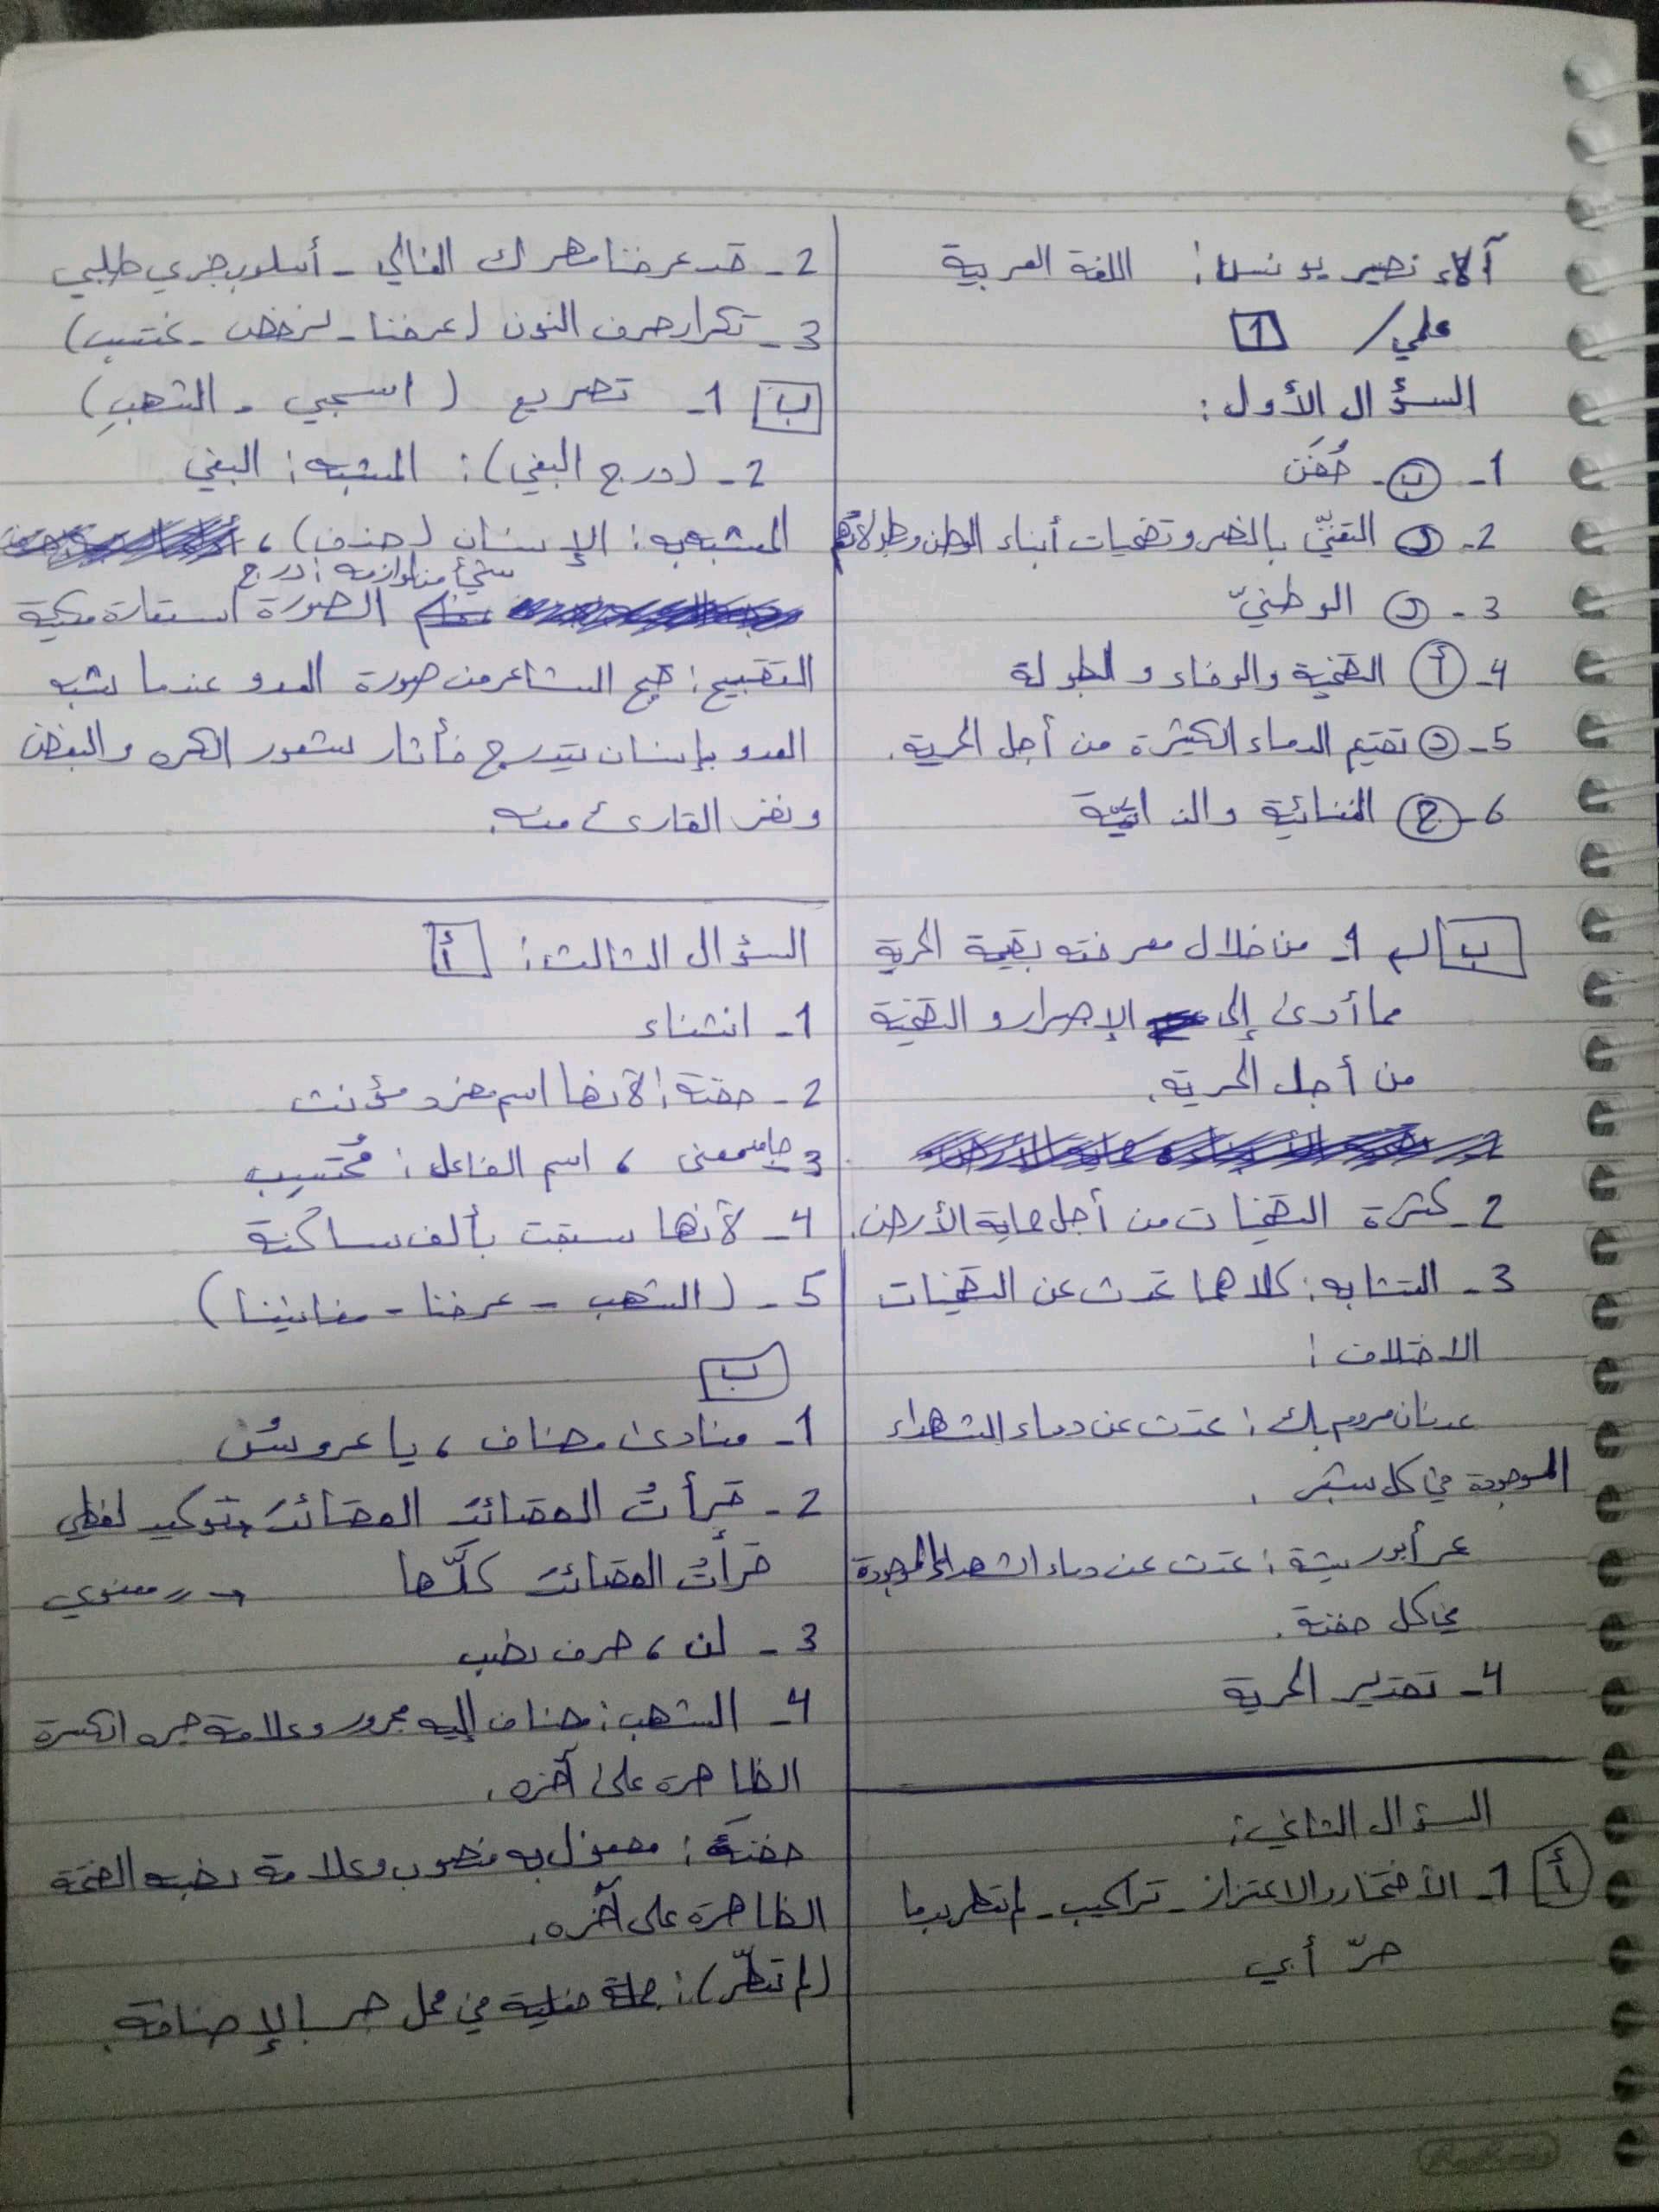 آلاء نصير يونس: اللغة العربية
علمي / 1
السؤال الأول:
1- ب - حُفَن
2- د التغنّي بالنصر وتضحيات أبناء الوطن وبطولاتهم
3- د الوطنيّ
4- أ التضحية والوفاء والبطولة
5- د تقديم الدماء الكثيرة من أجل الحرية.
6- ج الغنائية والذاتيّة
ب 1- من خلال معرفته بقيمة الحرية
مما أدى إلى الإصرار والتضحية
من أجل الحرية.
2- كثرة التضحيات من أجل حماية الأرض.
3- التشابه: كلاهما تحدث عن التضحيات
الاختلاف:
عدنان مردم بك: تحدث عن دماء الشهداء
الموجودة في كل شبر.
عمر أبو ريشة: تحدث عن دماء الشهداء الموجودة
في كل حفنة.
4- تقدير الحرية
السؤال الثاني:
أ 1- الأفتخار والاعتزاز - تراكيب - لم تطهر بدما
حرّ أبي
2- قد عرفنا مهرك الغالي - أسلوب خبري طلبي
3- تكرار حرف النون (عرفنا - نرخص - نحتسب)
ب 1- تصريع (اسحبي - الشهبِ)
2- (درج البغي): المشبه: البغي
المشبه به: الإنسان (حذف)،
شيئ من لوازمه: درج
الصورة استعارة مكنية
التقبيح: قبح الشاعر من صورة العدو عندما شبه
العدو بإنسان يتدرج فأثار شعور الكره والبغض
ونفر القارئ منه.
السؤال الثالث: أ
1- انتشاء
2- حفنة: لأنها اسم مفرد مؤنث
3- جامد معنى، اسم الفاعل: مُحتسِب
4- لأنها سبقت بألف ساكنة
5- (الشهب - عرفنا - مغانينا)
ب
1- منادى مضاف، يا عروسُ
2- قرأتُ القصائدَ القصائدَ توكيد لفظي
قرأتُ القصائدَ كلَّها → 〃 معنوي
3- لن، حرف نصب
4- الشهب: مضاف إليه مجرور وعلامة جره الكسرة
الظاهرة على آخره.
حفنةً: مفعول به منصوب وعلامة نصبه الفتحة
الظاهرة على آخره.
(لم تطهّر): جملة فعلية في محل جر بالإضافة.